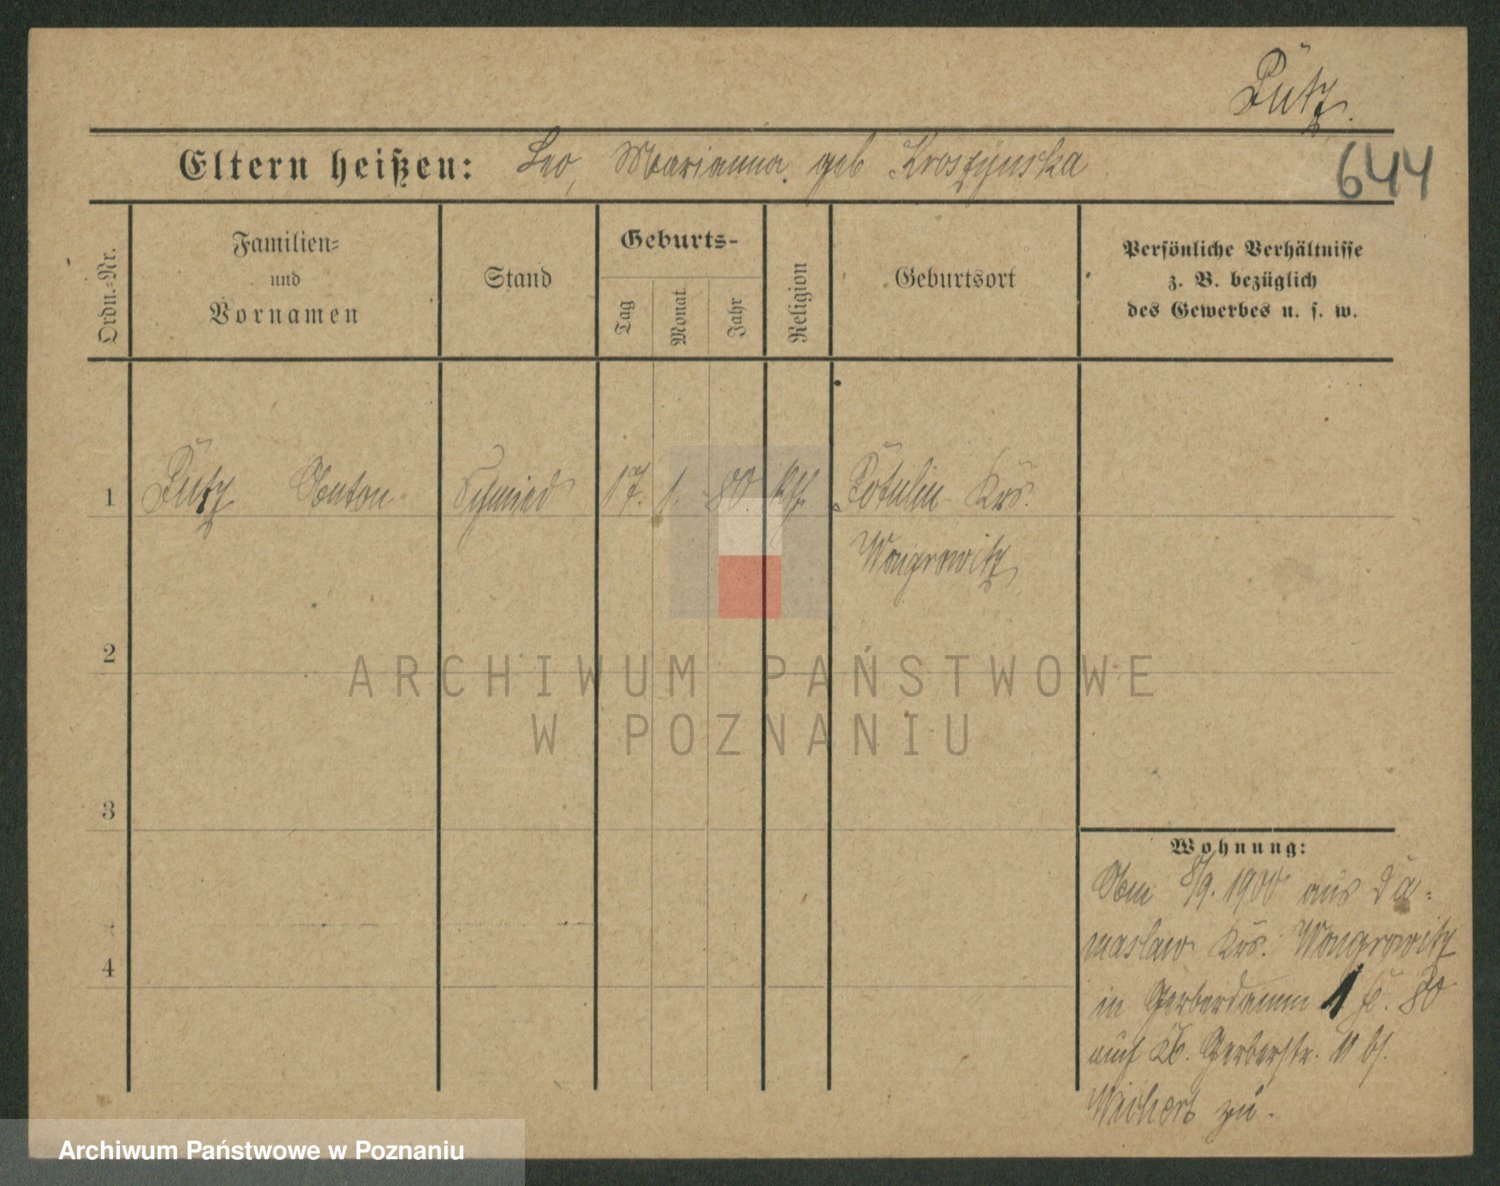 Pütz.
Eltern heißen: Leo, Marianna. geb Kroszynska.
644
Ordn.-Nr.
Familien-
und
Vornamen
Stand
Geburts-
Tag
Monat.
Jahr
Religion
Geburtsort
Persönliche Verhältnisse
z. B. bezüglich
des Gewerbes u. s. w.
1 Pütz Anton Schmied 17. 1. 80. kth. Potulin Krs.
Wongrowitz
2
ARCHIWUM PAŃSTWOWE
W POZNANIU
3
Wohnung:
Am 8/9. 1900 aus Da-
maslaw Krs. Wongrowitz
4
in Gerberdamm 1
auf Gerberstr. 11 bs.
Wichert zu.
Archiwum Państwowe w Poznaniu